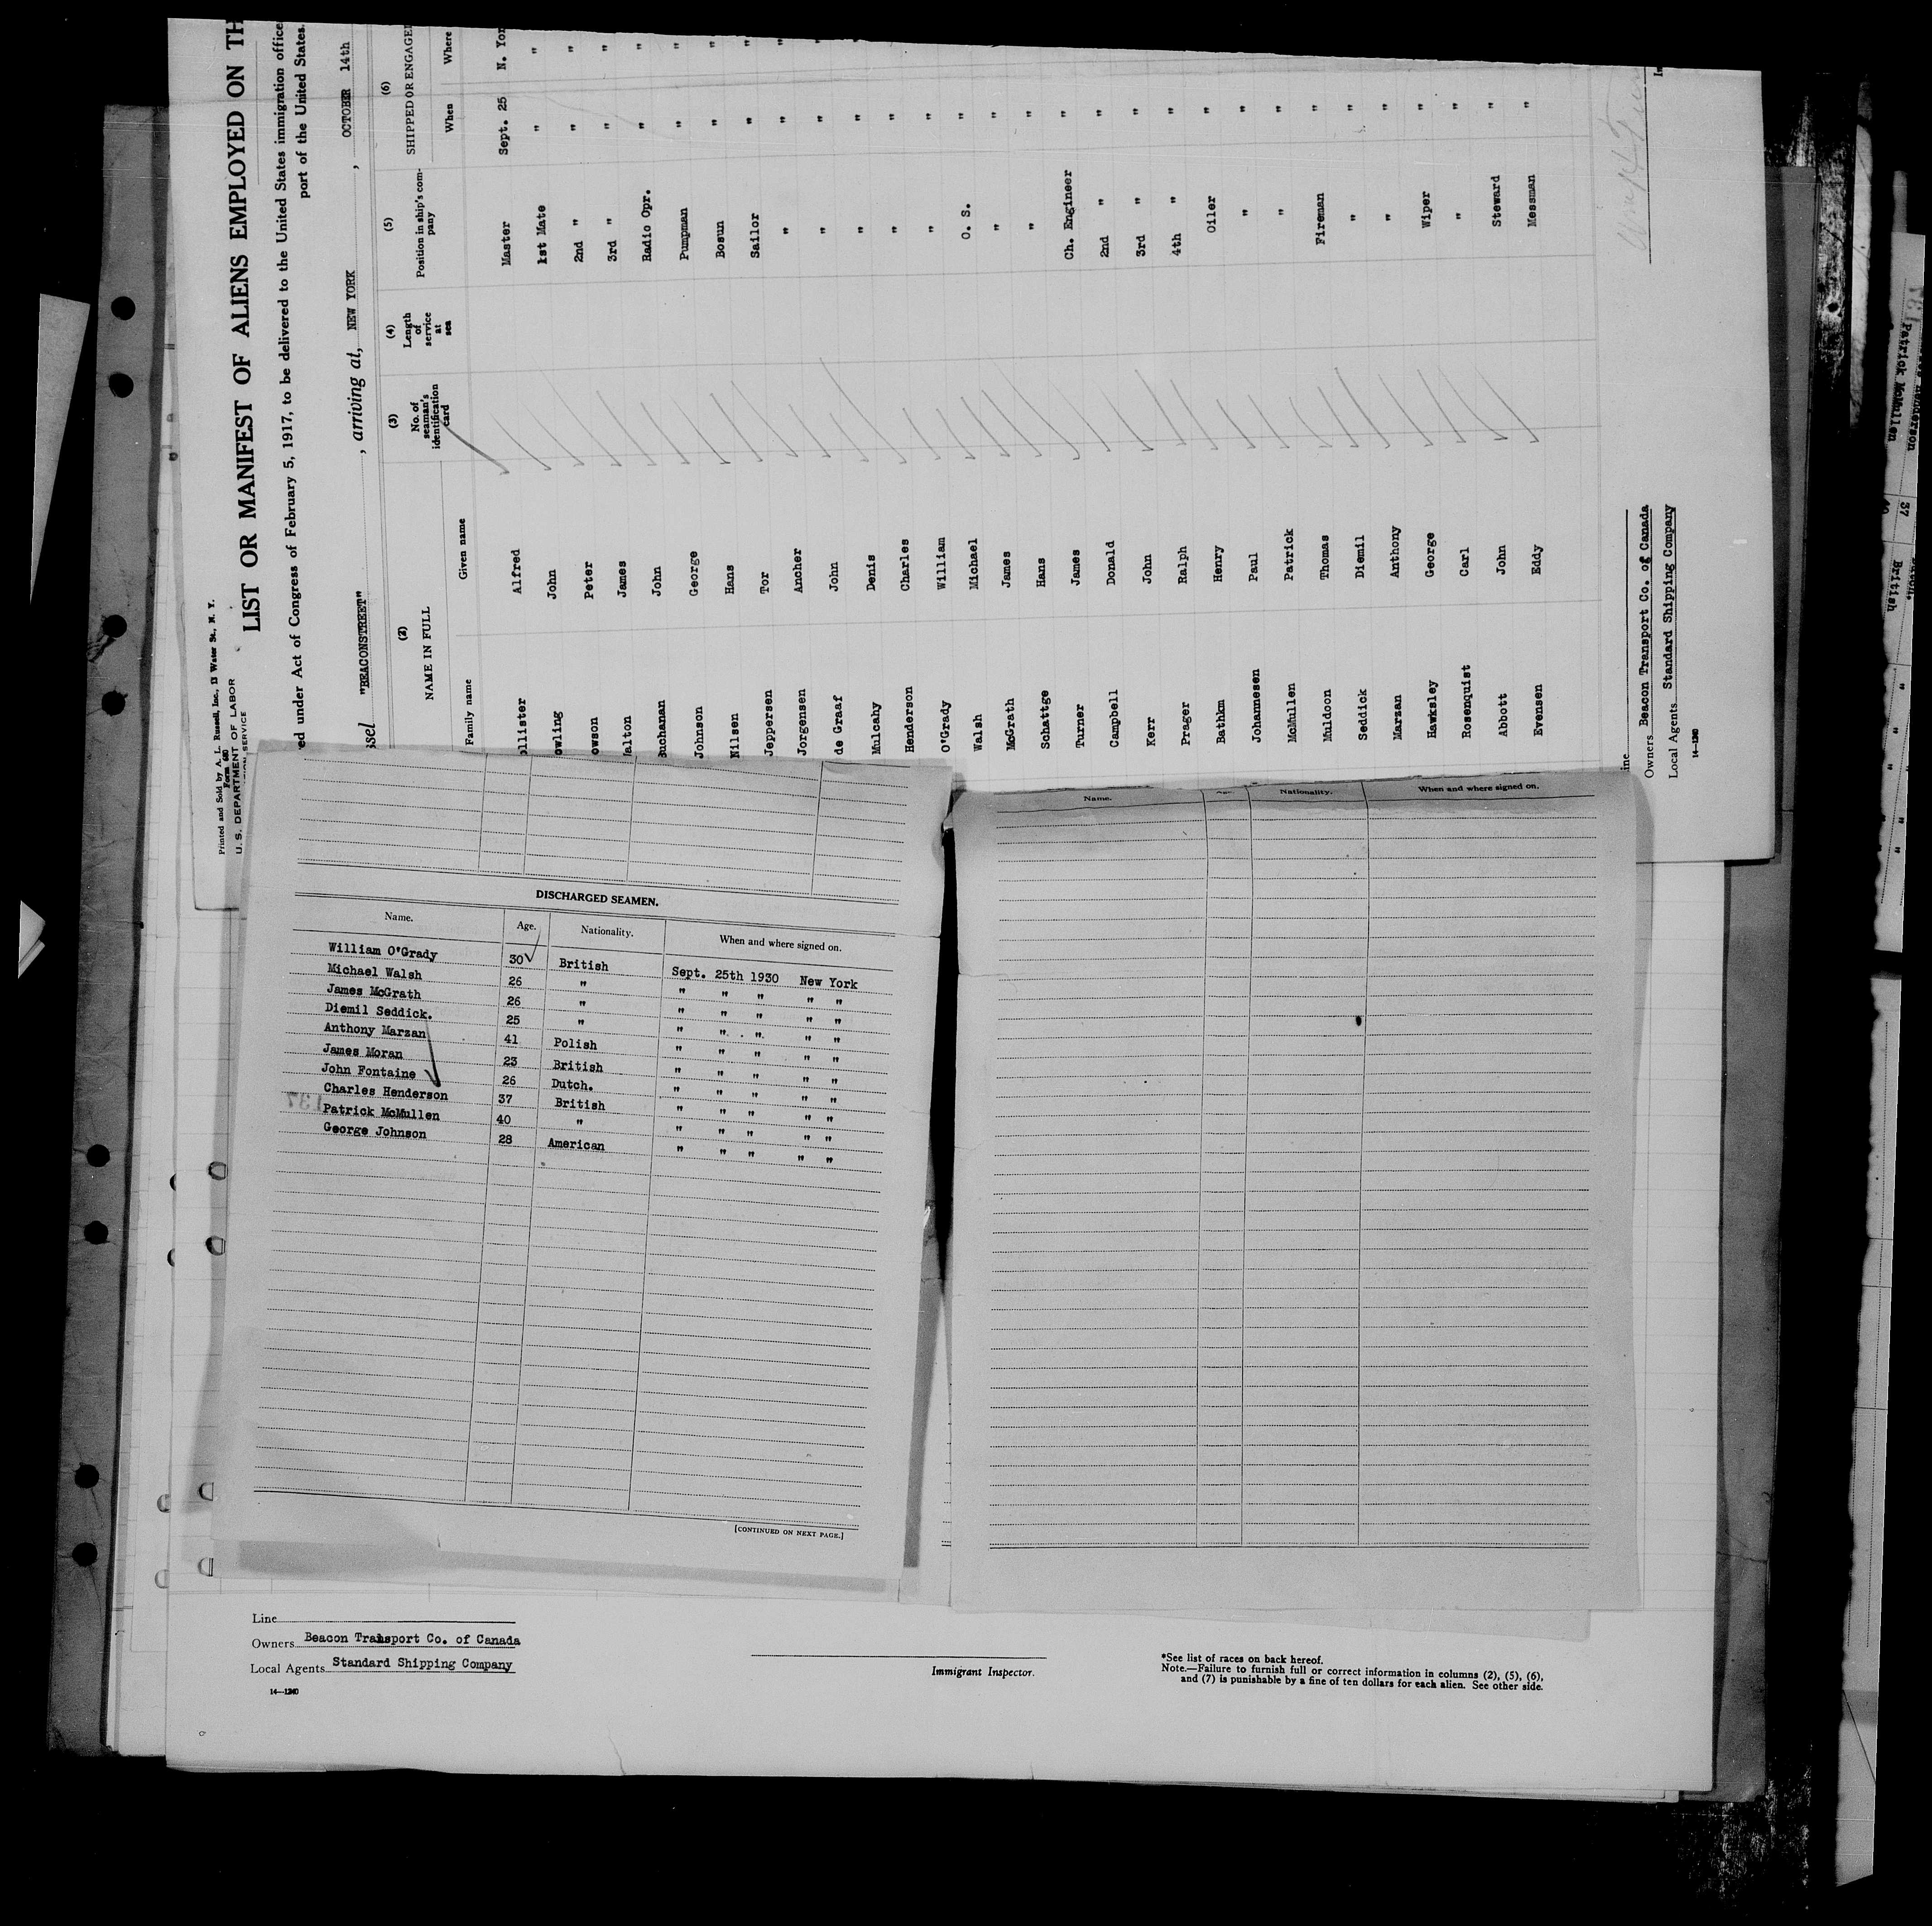 Printed and Sold by A. L. Russell, Inc., 13 Water St., N. Y.
Form 680
U. S. DEPARTMENT OF LABOR
SERVICE
LIST OR MANIFEST OF ALIENS EMPLOYED ON TH
ed under Act of Congress of February 5, 1917, to be delivered to the United States immigration office
port of the United States.
ssel "BEACONSTREET", arriving at, NEW YORK, OCTOBER 14th
(2) (3) (4) (5) (6)
NAME IN FULL No. of seaman's identification card Length of service at sea Position in ship's company SHIPPED OR ENGAGED
Family name Given name When Where
ollister Alfred Master Sept. 25 N. Yor
owling John 1st Mate " "
owson Peter 2nd " " "
alton James 3rd " " "
Buchanan John Radio Opr. " "
Johnson George Pumpman " "
Nilsen Hans Bosun " "
Jeppersen Tor Sailor " "
Jorgensen Ancher " " "
de Graaf John " " "
Mulcahy Denis " "
Henderson Charles " "
O'Grady William " "
Walsh Michael O. S. "
McGrath James " "
Schattge Hans " "
Turner James Ch. Engineer "
Campbell Donald 2nd " "
Kerr John 3rd " "
Prager Ralph 4th " "
Bathkm Henry Oiler "
Johannesen Paul " "
McMullen Patrick " "
Muldoon Thomas Fireman "
Seddick Diemil " "
Marzan Anthony " "
Hawksley George Wiper "
Rosenquist Carl " "
Abbott John Steward "
Evensen Eddy Messman "
ine
Owners Beacon Transport Co. of Canada
Local Agents Standard Shipping Company
14—1240
DISCHARGED SEAMEN.
Name. Age. Nationality. When and where signed on.
William O'Grady 30 British Sept. 25th 1930 New York
Michael Walsh 26 " " " " " "
James McGrath 26 " " " " " "
Diemil Seddick. 25 " " " " " "
Anthony Marzan 41 Polish " " " " "
James Moran 23 British " " " " "
John Fontaine 26 Dutch. " " " " "
Charles Henderson 37 British " " " " "
Patrick McMullen 40 " " " " " "
George Johnson 28 American " " " " "
137
[CONTINUED ON NEXT PAGE.]
Name. Age. Nationality. When and where signed on.
Line
Owners Beacon Transport Co. of Canada
Local Agents Standard Shipping Company
14—1240
Immigrant Inspector.
*See list of races on back hereof.
Note.—Failure to furnish full or correct information in columns (2), (5), (6),
and (7) is punishable by a fine of ten dollars for each alien. See other side.
Henderson 37
Patrick McMullen 40 British